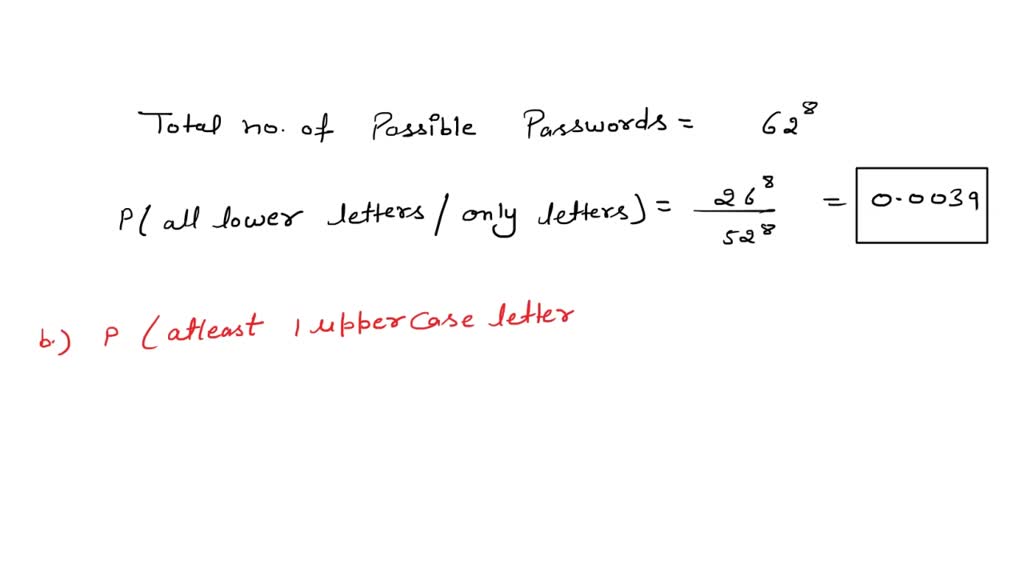 Total no. of Possible Passwords = 62⁸
P( all lower letters / only letters) = 26⁸/52⁸ = 0.0039
b.) P (atleast 1 uppercase letter